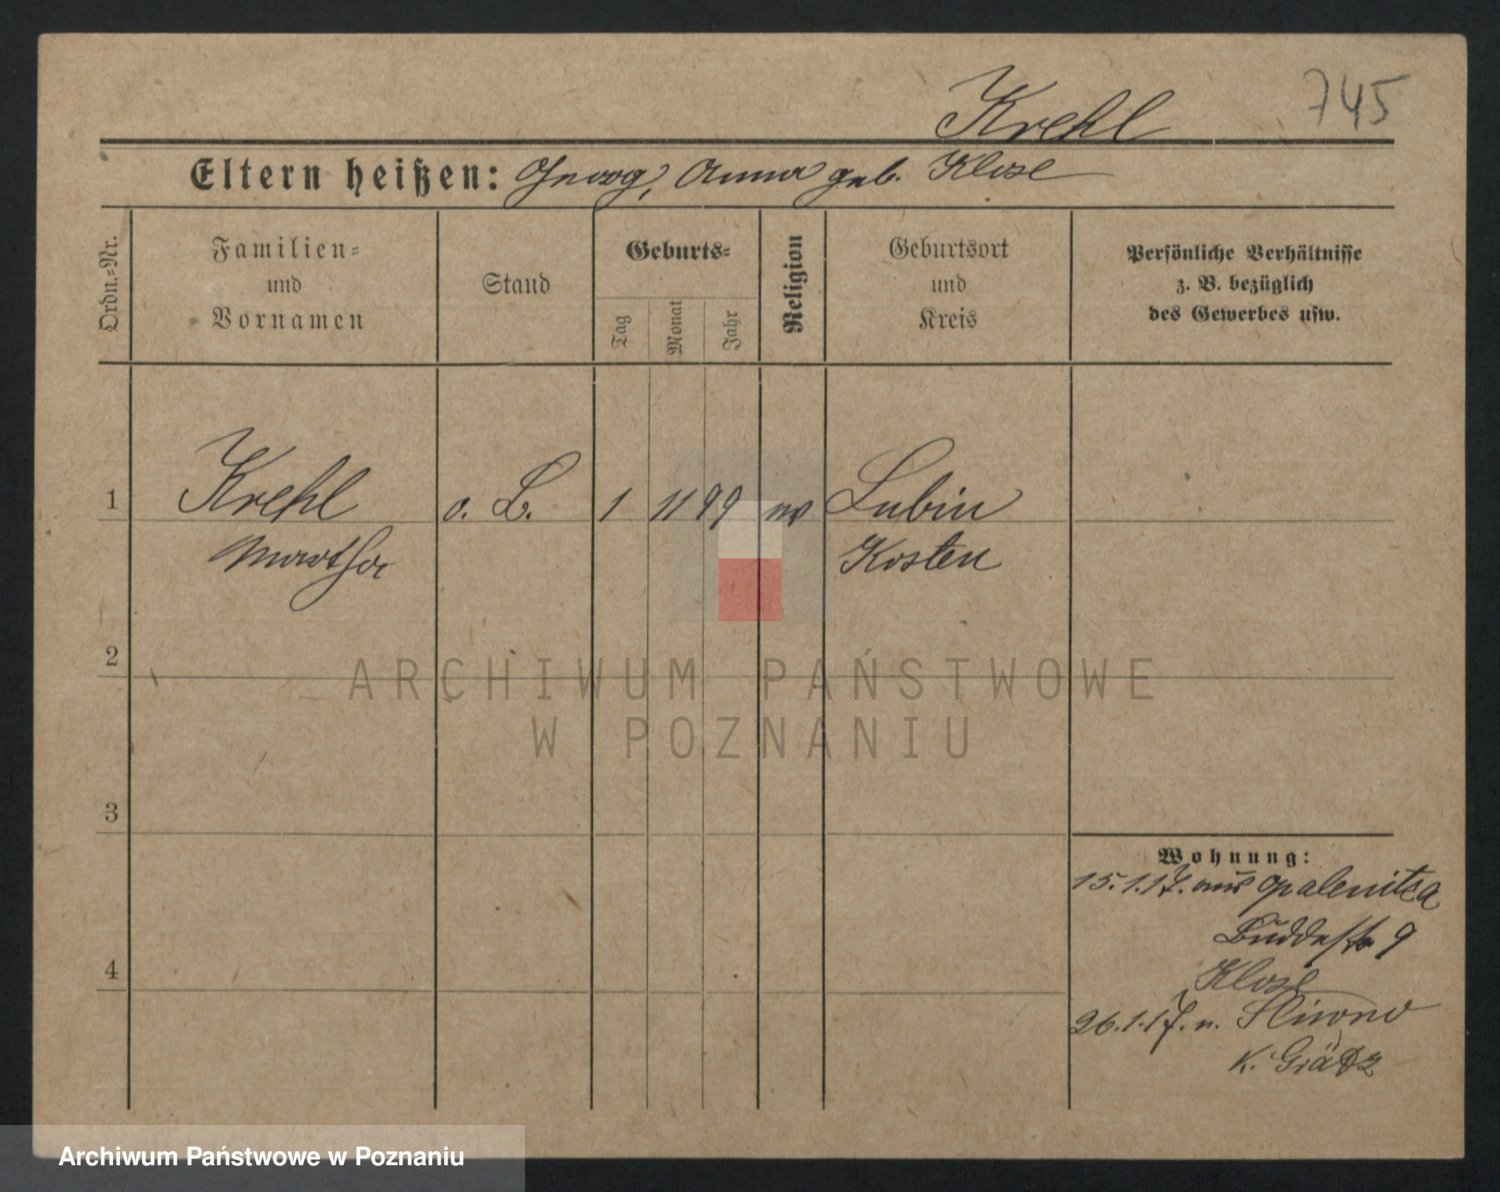 Krehl 745
Eltern heißen: Georg, Anna geb. Klose
Ordn.=Nr.
Familien=
und
Vornamen
Stand
Geburts=
Tag
Monat
Jahr
Religion
Geburtsort
und
Kreis
Persönliche Verhältnisse
z. B. bezüglich
des Gewerbes usw.
1 Krehl o. B. 1 11 99 Lubin
Martha Kosten
2
3
4
Wohnung:
15.1.17. aus Opalenitza
Buddestr 9
Klose
26.1.17. n. Sliwno
K. Grätz
ARCHIWUM PAŃSTWOWE
W POZNANIU
Archiwum Państwowe w Poznaniu